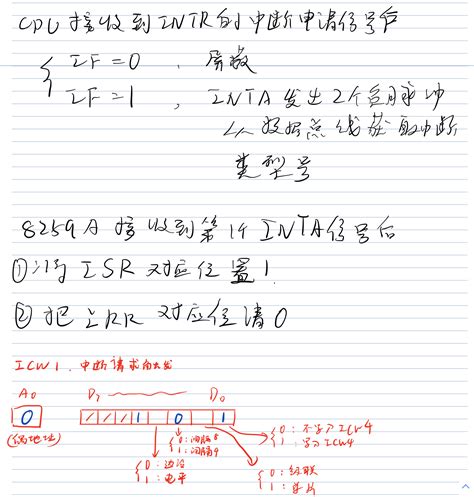 CPU 接收到 INTR 的中断申请信号后
IF = 0 , 屏蔽
IF = 1 , INTA 发出 2 个负脉冲
从数据总线获取中断
类型号
8259A 接收到第 1个 INTA 信号后
① 将 ISR 对应位置 1.
② 把 IRR 对应位清 0
ICW1. 中断请求触发
A0 D7 D0
0 / / / 1 0 1
(偶地址)
0: 间隔 8
1: 间隔 4
0: 不写入 ICW4
1: 写入 ICW4
0: 边沿
1: 电平
0: 级联
1: 单片